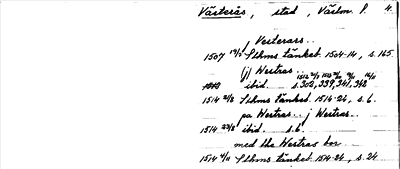 Västerås, stad, Västm. l. 4.
j Vesterars..
1507 19/2 Sthms tänkeb. 1504-14, s. 165.
(j) Westras
ibid. s. 302, 339, 341, 342
1514 2/8 Sthms Tänkeb. 1514-24, s. 6.
pa Westras.. j Westras..
1514 23/8 ibid. s. 6.
med the Westras boe
1514 Sthms tänkeb. 1514-24, s. 24